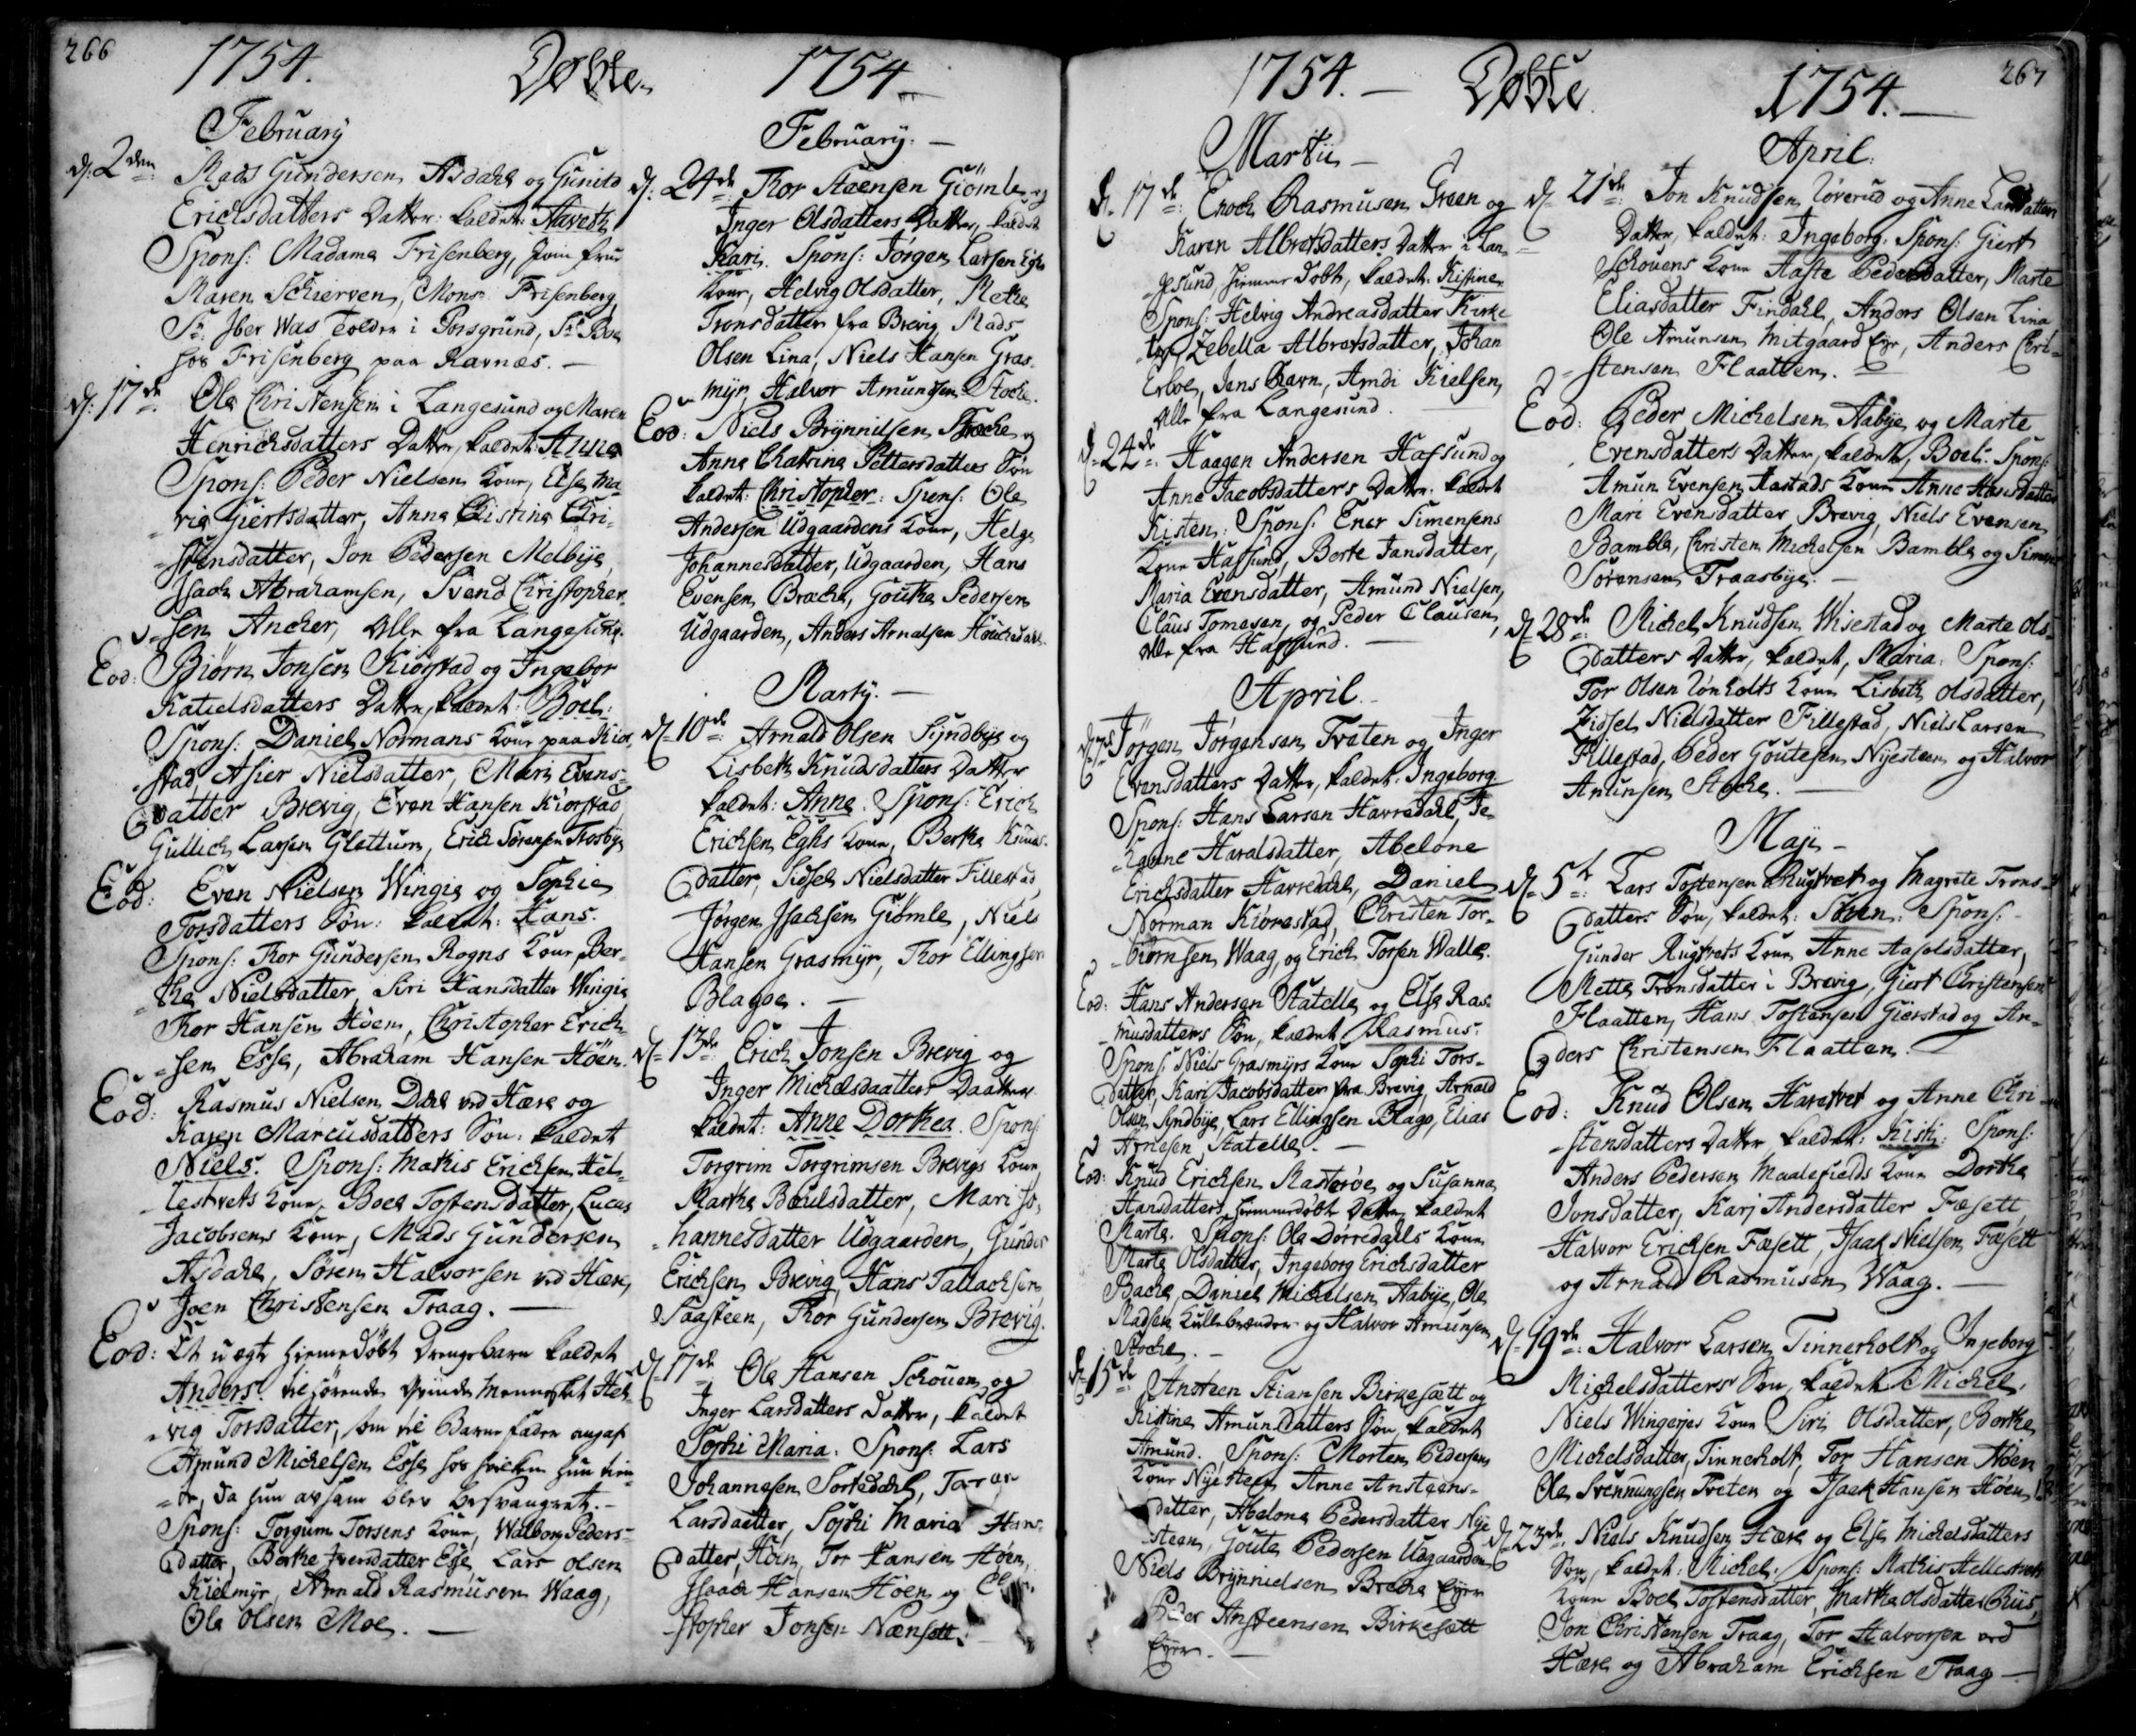 266
1754.
Døbte
1754
February
d: 2den Mads Gundersen Asdahl og Gunild
Erichsdatters Datter: kaldet: Aaveth
Spons: Madame Frisenberg, Jomfru
Maren Schierven, Mons: Frisenberg,
Sr. Iver Was Tolder i Porsgrund, Sr.
hos Frisenberg paa Ravnæs. —
d: 17de Ole Christensen i Langesund og Maren
Henrichsdatters Datter, kaldet: Anne
Spons: Peder Nielsens Kone, Else Ma-
ria Giertsdatter, Anna Christina Chri-
stensdatter, Jon Pedersen Melbye,
Isach Abrahamsen, Svend Christopher-
sen Ancher, Alle fra Langesund.
Eod: Biørn Jonsen Kiørstad og Ingebor
Katielsdatters Datter, kaldet: Boel:
Spons: Daniel Normans Kone paa Kiør-
stad, Asier Nielsdatter, Mari Evens-
datter Brevig, Even Hansen Kiørstad
Gullich Larsen Glittum, Erich Sørensen Trosbye
Eod: Even Nielsen Wingie og Sophie
Torsdatters Søn: kaldet: Hans.
Spons: Thor Gundersen Rogns Kone, Ber-
the Nielsdatter, Siri Hansdatter Wingie
Thor Hansen Høen, Christopher Erich-
sen Esse, Abraham Hansen Høen.
Eod: Rasmus Nielsen Dahl ved Herre og
Karen Marcusdatters Søn: kaldet
Niels. Spons: Mathis Erichsen Hel-
lestvets Kone, Boel Tostensdatter, Lucas
Jacobsens Kone, Mads Gundersen
Asdahl, Søren Halvorsen ved Herre,
Joen Christensen Traag. —
Eod: Et uægte hiemmedøbt Drengebarn kaldet
Anders. tilhørende Qvinde Mennesket Hel-
vig Torsdatter, som til Barne fader angaf
Amund Michelsen Esse hos hvilken hun tien-
te, da hun af ham blev besvangret. —
Spons: Torgrim Torsens Kone, Walborg Peders-
datter, Berthe Iversdatter Esse, Lars Olsen
Kielmyr, Arnald Rasmusen Waag,
Ole Olsen Moe. —
February. —
d: 24de Thor Staensen Giømle og
Inger Olsdatters Datter, kaldet
Kari. Spons: Jørgen Larsen Eghs
Kone, Helvig Olsdatter, Mette
Tronsdatter fra Brevig, Mads
Olsen Lina, Niels Hansen Gras-
myr, Halvor Amundsen Stoche.
Eod: Niels Brynnilsen Broche og
Anna Chatrina Pettersdatters Søn
kaldet: Christopher: Spons: Ole
Andersen Udgaardens Kone, Helge
Johannesdatter, Udgaarden, Hans
Evensen Broche, Goute Pedersen
Udgaarden, Anders Arnalsen
Marty. —
d: 10de Arnald Olsen Syndbye og
Lisbeth Knudsdatters Datter
kaldet: Anne. Spons: Erich
Erichsen Eghs Kone, Berthe Knuds-
datter, Sidsel Nielsdatter Fillestad,
Jørgen Isachsen Giømle, Niels
Hansen Grasmyr, Thor Ellingsen
Blagoe. —
d: 13de Erich Jonsen Brevig og
Inger Michelsdaatters Daatter
kaldet: Anne Dorthea. Spons:
Torgrim Torgrimsen Brevigs Kone,
Marthe Boulsdatter, Mari Jo-
hannesdatter Udgaarden, Gunder
Erichsen Brevig, Hans Tallachsen
Saasteen, Thor Gundersen Brevig.
d: 17de Ole Hansen Schouen og
Inger Larsdatters Datter, kaldet
Sophi Maria. Spons: Lars
Johannesen Sortedahl,
Larsdaatter, Sophi Maria Hans-
datter, Høen, Tor Hansen Høen,
Isaach Hansen Høen og
stopher Jonsen Nænsett.
267
1754. —
Døbte
1754. —
Martii —
d. 17de: Enoch Rasmusen Green og
Karen Albretsdatters Datter i Lan-
gesund, hiemme døbt, kaldet: Kistine
Spons: Helvig Andreasdatter Kirke
Zebella Albretsdatter, Johan
Erboe, Jens Ravn, Amdi Kielsen,
Alle fra Langesund. —
d. 24de: Haagen Andersen Hafsund og
Anne Jacobsdatters Datter kaldet
Kisten: Spons: Ener Simensens
Kone Hafsund, Berte Jansdatter,
Maria Evensdatter, Amund Nielsen,
Claus Tomesen, og Peder Clausen,
alle fra Hafsund. —
April. —
d. 7de Jørgen Jørgensen Tveten og Inger
Evensdatters Datter, kaldet: Ingeborg
Spons: Hans Larsen Havredahl, Je-
hanne Haralsdatter, Abelone
Erichsdatter Havredahl, Daniel
Norman Kiørestad, Christen Tor-
biørnsen Waag, og Erich Torsen Walle.
Eod: Hans Andersen Statelle og Else Ras-
musdatters Søn, kaldet Rasmus:
Spons: Niels Grasmyrs Kone Sophi Tors-
datter, Kari Jacobsdatter fra Brevig, Arnald
Olsen Syndbye, Lars Ellingsen Blago, Elias
Arnesen Statelle. —
Eod: Knud Erichsen Rasterøe og Susanna
Hansdatters hiemmedøbt Datter, kaldet
Marte. Spons: Ole Dørredahls Kone
Marte Olsdatter, Ingeborg Erichsdatter
Bache, Daniel Michelsen Aabye, Ole
Madsen Kullebrænder og Halvor Amunsen
Stoche. —
d. 15de Ansteen Stiansen Birkesætt og
Kistine Amundsdatters Søn, kaldet
Amund. Spons: Morten Pedersens
Kone Nyesteen Anne Ansteens-
datter, Abelone Pedersdatter Nye
steen, Goute Pedersen Udgaarden
Niels Brynnielsen Breche Eyer
Peder Ansteensen Birkesætt
Eyer. —
April.
d. 21de: Jon Knudsen Løverud og Anne Larsdatters
Datter, kaldet: Ingeborg: Spons: Giert
Schouens Kone Aaste Pedersdatter, Marte
Eliasdatter Findahl, Anders Olsen Lina
Ole Amunsen Mitgaard Eyr, Anders Chri-
stensen Flaatten. —
Eod: Peder Michelsen Aabye og Marte
Evensdatters Datter, kaldet, Boel: Spons:
Amun Evensen Aastads Kone Anne Hansdatter
Mari Evensdatter Brevig, Niels Evensen
Bamble, Christen Michelsen Bamble og Simen
Sørensen Traasbye. —
d. 28de: Michel Knudsen Wisestad og Marte Ols-
datters Datter, kaldet, Maria. Spons:
Tor Olsen Lønholts Kone Lisbeth Olsdatter,
Zidsel Nielsdatter Fillestad, Niels Larsen
Fillestad, Peder Goutesen Nyesteen og Halvor
Amunsen Stoche. —
Maji —
d. 5te: Lars Tostensen Rugtvet og Magrete Trons-
datters Søn, kaldet: Steen: Spons:
Gunder Rugtvets Kone Anne Aasolsdatter,
Mette Tronsdatter i Brevig, Giert Christensen
Flaatten, Hans Tostensen Gierstad og An-
ders Christensen Flaatten.
Eod: Knud Olsen Haratvet og Anne Chri-
stensdatters Datter kaldet: Kisti: Spons:
Anders Pedersen Maalefields Kone Dorthe
Jonsdatter, Karj Andersdatter Fæsett
Halvor Erichsen Fæsett, Isaak Nielsen Fæsett
og Arnald Rasmusen Waag. —
d. 19de: Halvor Larsen Tinnerholt og Ingeborg
Michelsdatters Søn, kaldet Michel.
Niels Wingejes Kone Siri Olsdatter, Borthe
Michelsdatter, Tinnerholt, Tor Hansen Høen
Ole Svennungsen Tveten og Isaak Hansen Høen
d. 23de: Niels Knudsen Herre og Else Michelsdatters
Søn, kaldet: Michel. Spons: Mathis Hellestvets
Kone Boel Tostensdatter, Marthe Olsdatter Riis,
Jon Christensen Traag, Tor Halvorsen ved
Herre og Abraham Erichsen Traag —